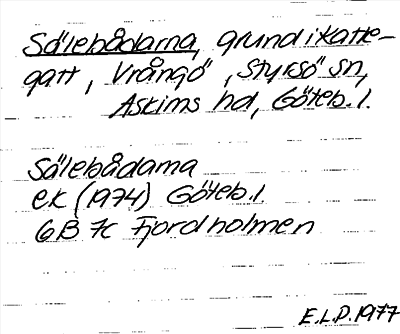 Sälebådarna, grund i Katte-
gatt, Vrångö, Styrsö sn,
Askims hd, Göteb. l.
Sälebådarna
ek (1974) Göteb. l.
6B 7c Fjordholmen
E.L.D. 1977